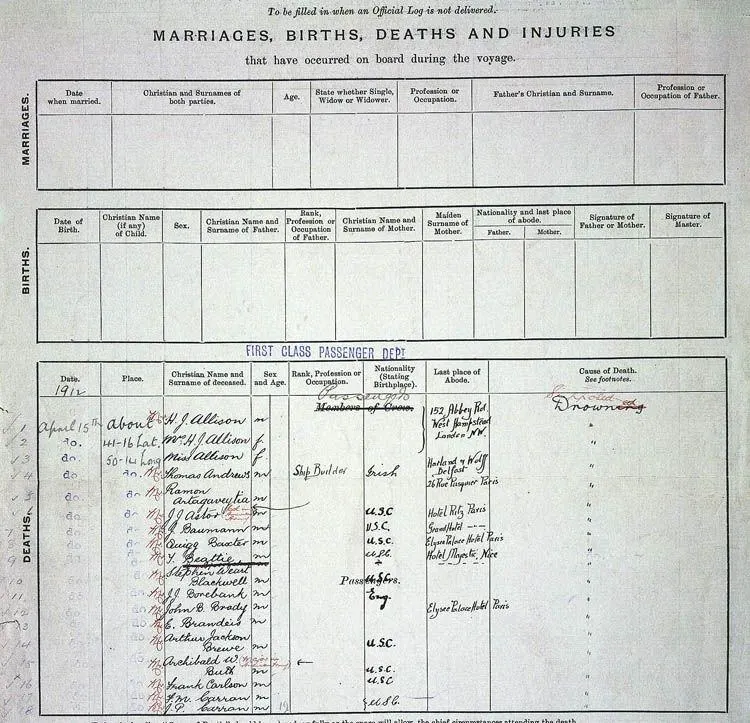 To be filled in when an Official Log is not delivered.
MARRIAGES, BIRTHS, DEATHS AND INJURIES
that have occurred on board during the voyage.
MARRIAGES.
Date when married.
Christian and Surnames of both parties.
Age.
State whether Single, Widow or Widower.
Profession or Occupation.
Father's Christian and Surname.
Profession or Occupation of Father.
BIRTHS.
Date of Birth.
Christian Name (if any) of Child.
Sex.
Christian Name and Surname of Father.
Rank, Profession or Occupation of Father.
Christian Name and Surname of Mother.
Maiden Surname of Mother.
Nationality and last place of abode.
Father.
Mother.
Signature of Father or Mother.
Signature of Master.
FIRST CLASS PASSENGER DEPT
DEATHS.
Date.
Place.
Christian Name and Surname of deceased.
Sex and Age.
Rank, Profession or Occupation.
Nationality (Stating Birthplace).
Last place of Abode.
Cause of Death.
See footnotes.
1912
Passengers
Members of Crew.
Supposed
Drowning ed
1 April 15th about Mr H. J. Allison m 152 Abbey Rd. West Hampstead London N.W. "
2 do. 41-16 Lat Mrs H J Allison f. "
3 do. 50-14 Long Miss Allison f. "
4 do. do. Mr Thomas Andrews m Ship Builder Irish Harland & Wolff Belfast "
5 do. do. Mr Ramon Artagaveytia m 26 Rue Pasquier Paris "
do. do. Mr J J Astor m U.S.C Hotel Ritz Paris "
7 do. do. Mr J. Baumann m U.S.C. Grand Hotel "
8 do. do. Mr Quigg Baxter m U.S.C. Elysee Palace Hotel Paris "
9 do. do. Mr T. Beattie m U.S.C. Hotel Majestic, Nice "
10 do. do. Mr Stephen Weart Blackwell m Passengers. U.S.C. "
11 do. do. Mr J.J. Borebank m Eng. "
12 do. do. Mr John B. Brady m Elysee Palace Hotel Paris "
13 do. do. Mr E. Brandeis m "
14 do. do. Mr Arthur Jackson Brewe m U.S.C. "
15 do. do. Mr Archibald W. Butt m U.S.C. "
16 do. do. Mr Frank Carlson m U.S.C "
do. do. Mr F. M. Carran m U.S.C. "
8 do. do. Mr J. P. Carran m 19 "